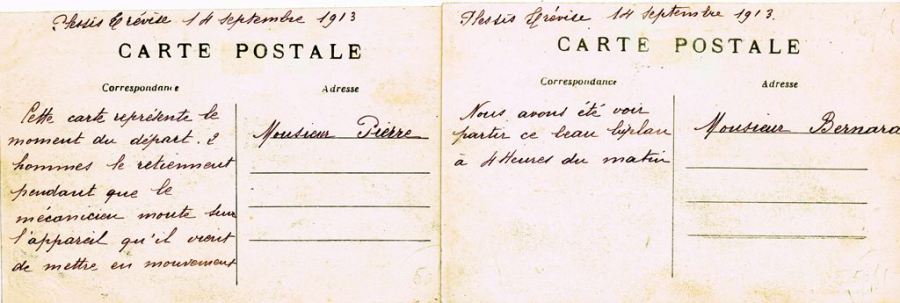 Plessis Trévise 14 septembre 1913
CARTE POSTALE
Correspondance
Adresse
Cette carte représente le
moment du départ. 2
hommes le retiennent
pendant que le
mécanicien monte sur
l'appareil qu'il vient
de mettre en mouvement
Monsieur Pierre
Plessis Trévise 14 septembre 1913.
CARTE POSTALE
Correspondance
Adresse
Nous avons été voir
partir ce beau biplan
à 4 Heures du matin
Monsieur Bernard